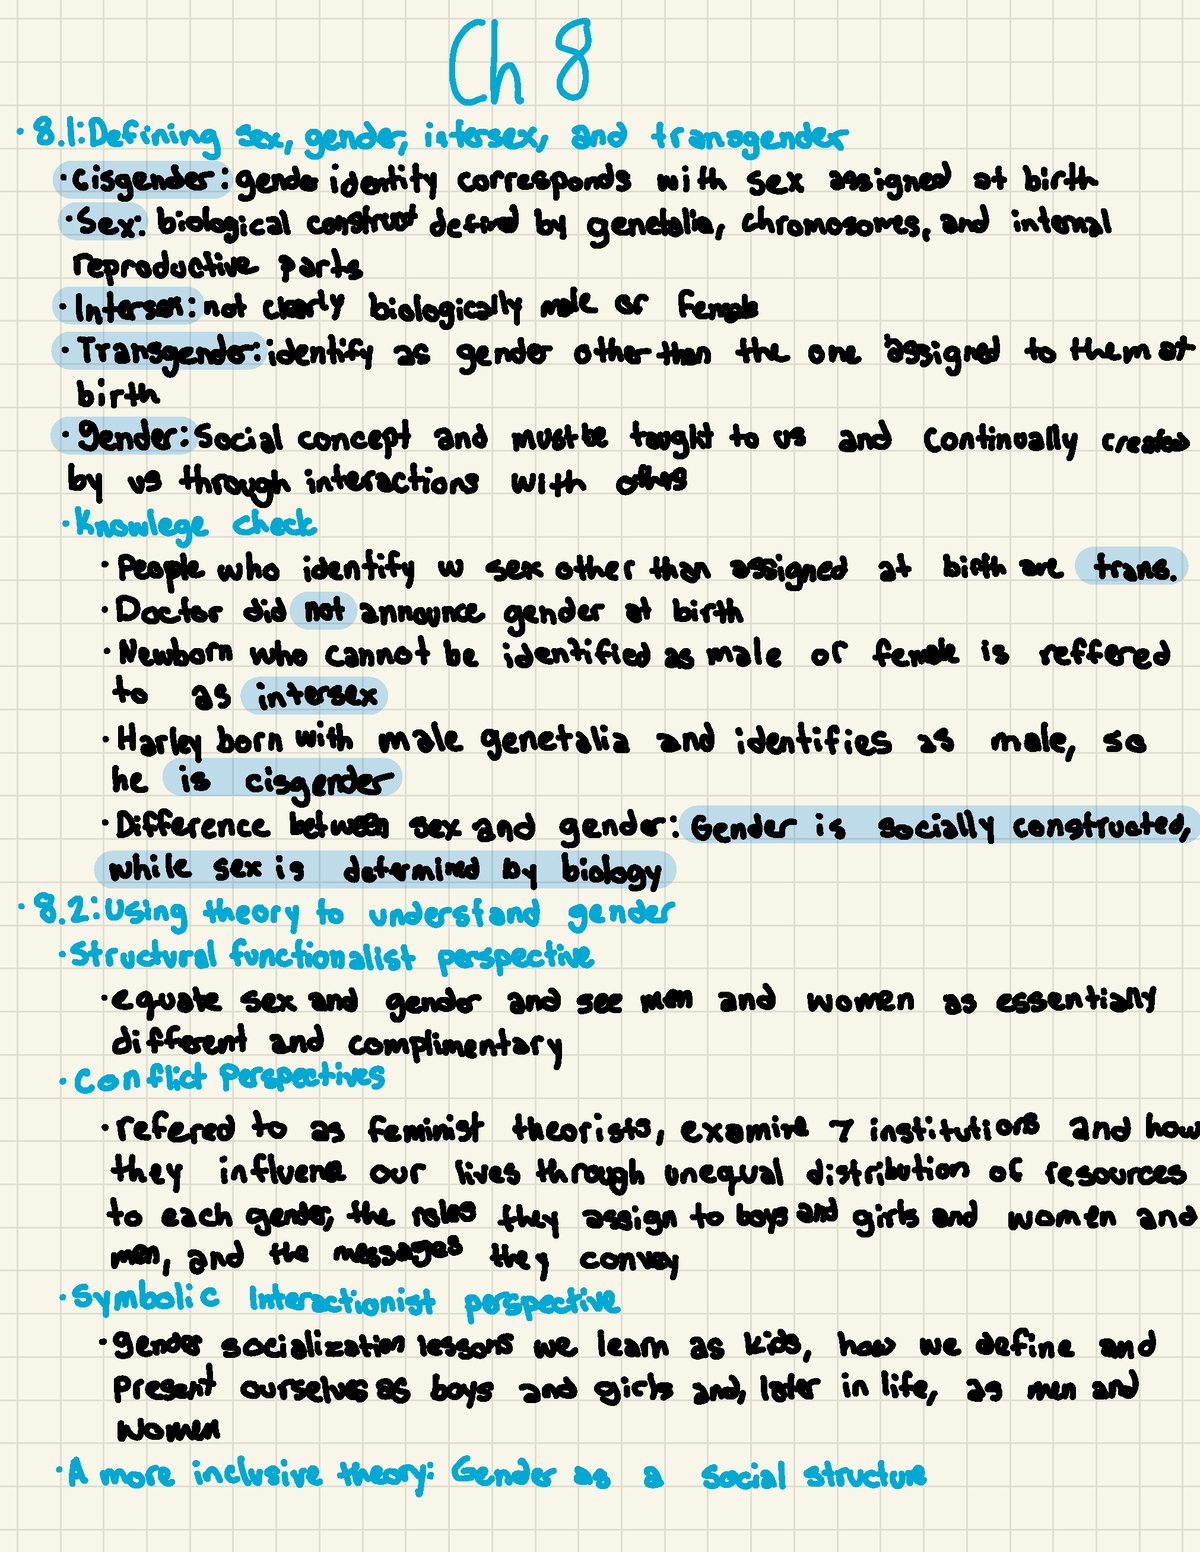 Ch 8
· 8.1: Defining sex, gender, intersex, and transgender
· Cisgender: gender identity corresponds with sex assigned at birth
· Sex: biological construct defined by genetalia, chromosomes, and internal
reproductive parts
· Intersex: not clearly biologically male or female
· Transgender: identify as gender other than the one assigned to them at
birth
· gender: Social concept and must be taught to us and continually created
by us through interactions with others
· Knowlege check
· People who identify w sex other than assigned at birth are trans.
· Doctor did not announce gender at birth
· Newborn who cannot be identified as male or female is reffered
to as intersex
· Harley born with male genetalia and identifies as male, so
he is cisgender
· Difference between sex and gender: Gender is socially constructed,
while sex is determined by biology
· 8.2: Using theory to understand gender
· Structural functionalist perspective
· equate sex and gender and see men and women as essentially
different and complimentary
· Conflict Perspectives
· refered to as feminist theorists, examine 7 institutions and how
they influence our lives through unequal distribution of resources
to each gender, the roles they assign to boys and girls and women and
men, and the messages they convey
· Symbolic Interactionist perspective
· gender socialization lessons we learn as kids, how we define and
Present ourselves as boys and girls and, later in life, as men and
women
· A more inclusive theory: Gender as a social structure